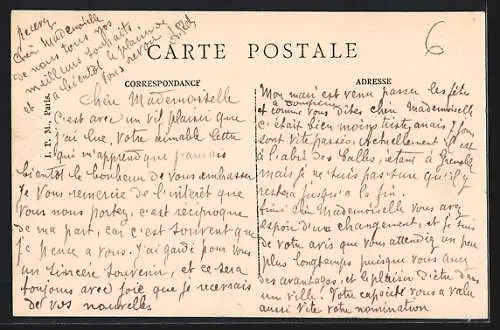 CARTE POSTALE
CORRESPONDANCE
ADRESSE
I. P. M., Paris
Chère Mademoiselle
C'est avec un vif plaisir que
j'ai lue, votre aimable lettre
qui m'apprend que j'aurais
bientôt le bonheur de vous embrasser
Je vous remercie de l'intérêt que
vous nous portez, c'est réciproque
de ma part, car c'est souvent que
je pense a vous. J'ai gardé pour vous
un sincère souvenir, et ce sera
toujours avec joie que je recevrais
de vos nouvelles
Mon mari est venu passer les fêtes
et comme vous dites chère Mademoiselle
c'était bien moins triste, mais 7 jours
sont vite passés. Actuellement il est
à l'abri des balles, étant à
mais je ne suis pas sure qu'il y
restera jusqu'à la fin.
Ainsi chère Mademoiselle vous avez
espoir d'un changement, et je suis
de votre avis que vous attendiez un peu
plus longtemps puisque vous avez
des avantages, et le plaisir d'être dans
une ville! Votre capacité vous a valu
aussi vite votre nomination
chère Mademoiselle
de nous tous vos
meilleurs souhaits
et à bientôt le plaisir de
vous revoir
6